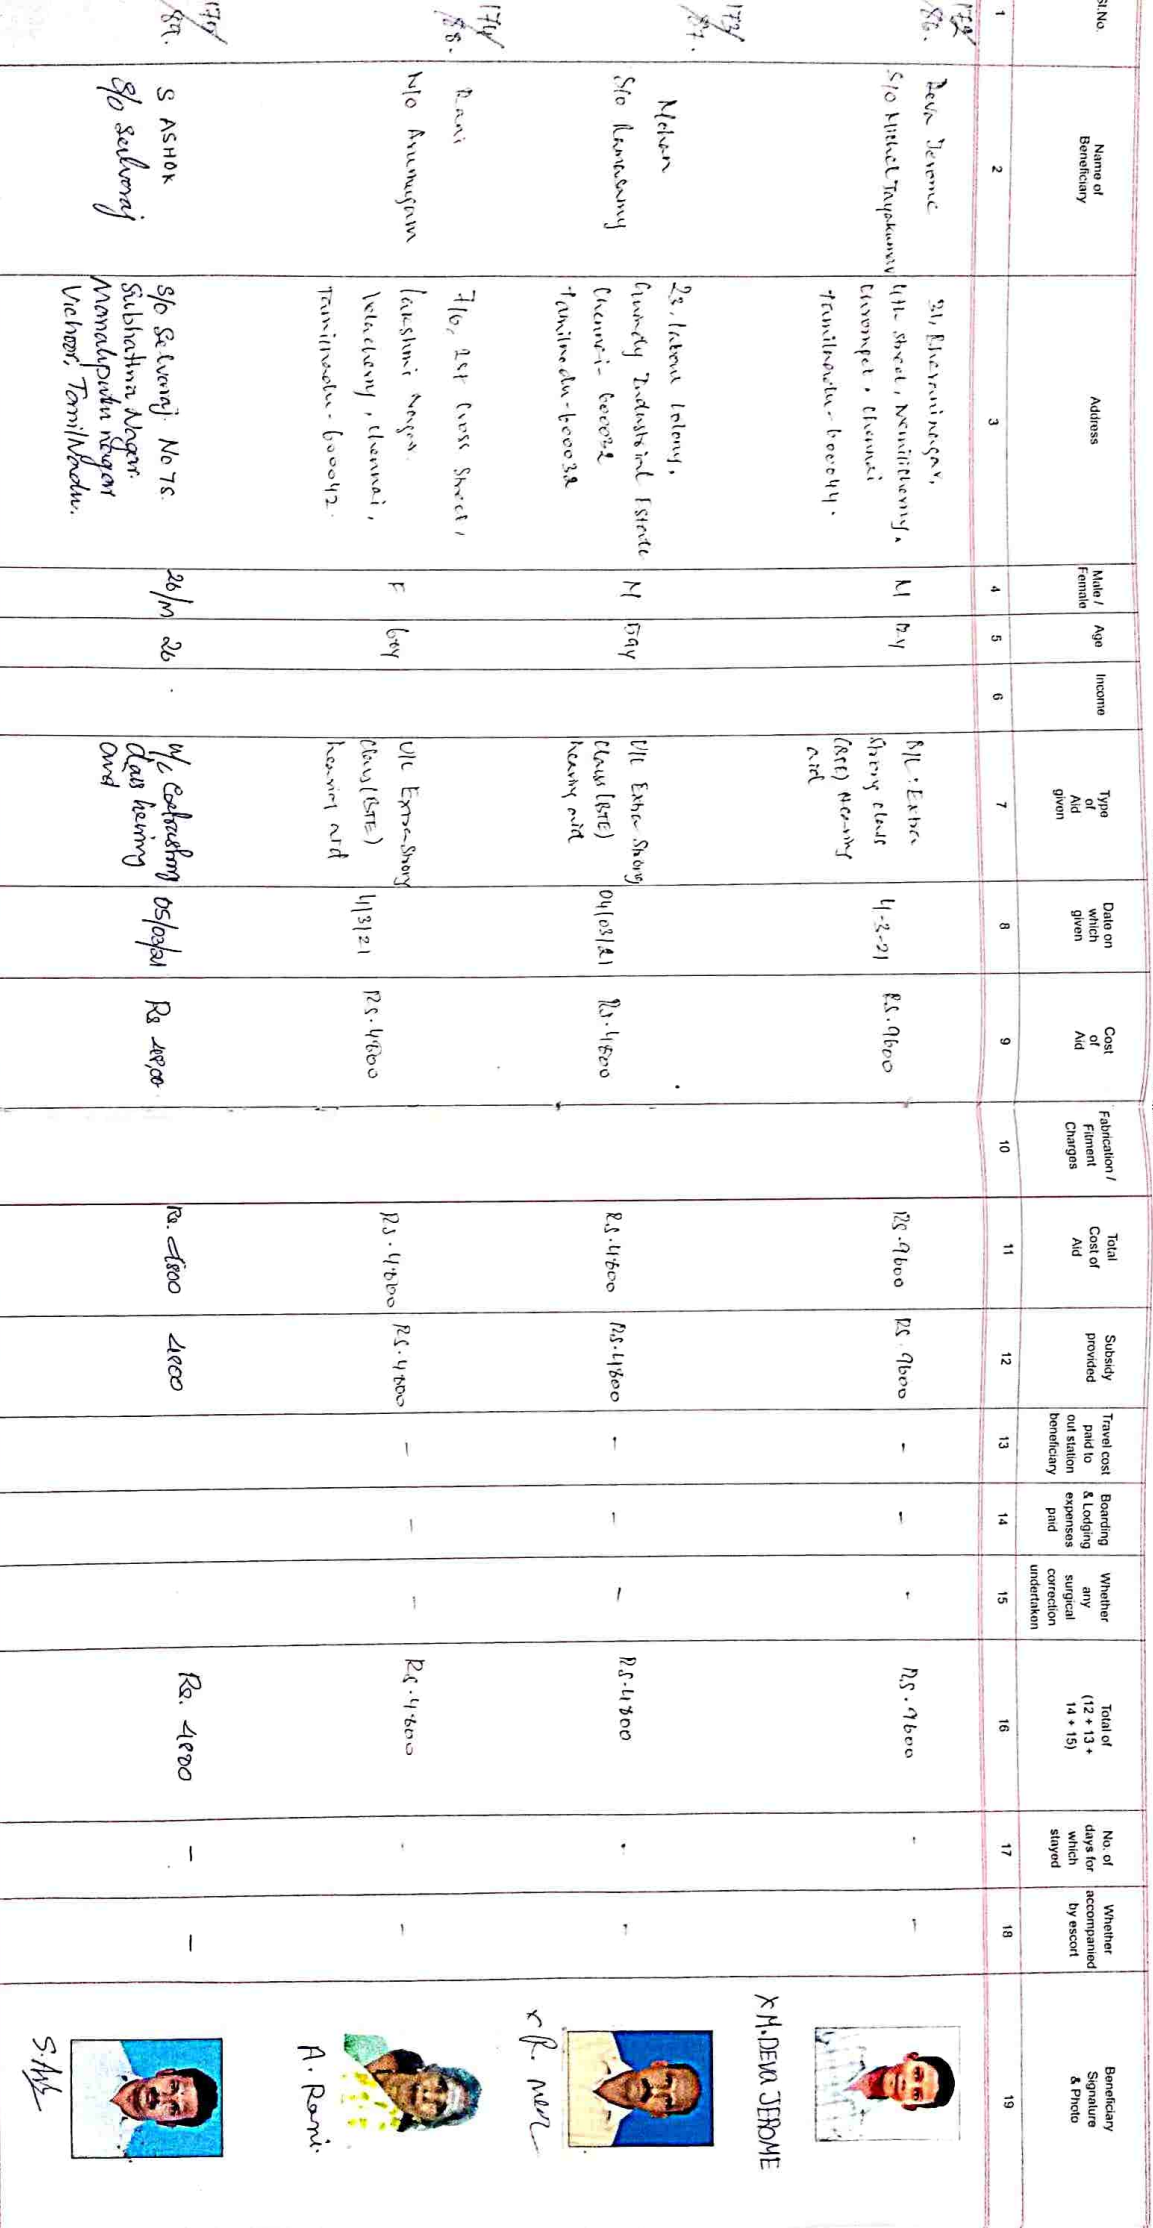 Sl.No.
Name of
Beneficiary
Address
Male /
Female
Age
Income
Type
of
Aid
given
Date on
which
given
Cost
of
Aid
Fabrication /
Fitment
Charges
Total
Cost of
Aid
Subsidy
provided
Travel cost
paid to
out station
beneficiary
Boarding
& Lodging
expenses
paid
Whether
any
surgical
correction
undertaken
Total of
(12 + 13 +
14 + 15)
No. of
days for
which
stayed
Whether
accompanied
by escort
Beneficiary
Signature
& Photo
1 2 3 4 5 6 7 8 9 10 11 12 13 14 15 16 17 18 19
172/
86.
Deva Jerome
S/o Michel Jayakumar
31, Bhavani nagar,
4th street, Nemilichery,
Chrompet, Chennai
Tamilnadu - 600044.
M
B/L : Extra
Strong class
(BTE) Hearing
aid
4-3-21
Rs. 9600
Rs. 9600
Rs. 9600
-
-
-
Rs. 9600
-
-
X M. DEVA JEROME
173/
87.
Mohan
S/o Ramasamy
23, labour colony,
Guindy Industrial Estate
Chennai - 600032
Tamilnadu - 600032
M
U/L Extra Strong
Class (BTE)
hearing aid
04/03/21
Rs. 4800
Rs. 4800
Rs. 4800
-
-
-
Rs. 4800
-
-
174/
88.
Rani
W/o Arumugam
7/6, 1st Cross Street,
Lakshmi Nagar.
Velachery, Chennai,
Tamilnadu - 600042.
F
U/L Extra Strong
Class (BTE)
hearing aid
4/3/21
Rs. 4800
Rs. 4800
Rs. 4800
-
-
-
Rs. 4800
-
-
A. Rani.
89.
S ASHOK
S/o Selvaraj
S/o Selvaraj No 75.
Subhathra Nagar.
Manalipudu nagar
Vichoor, Tamil Nadu.
26/M
26
class hearing
05/03/21
Rs 48,00
Rs. 4800
4800
Rs. 4800
-
-